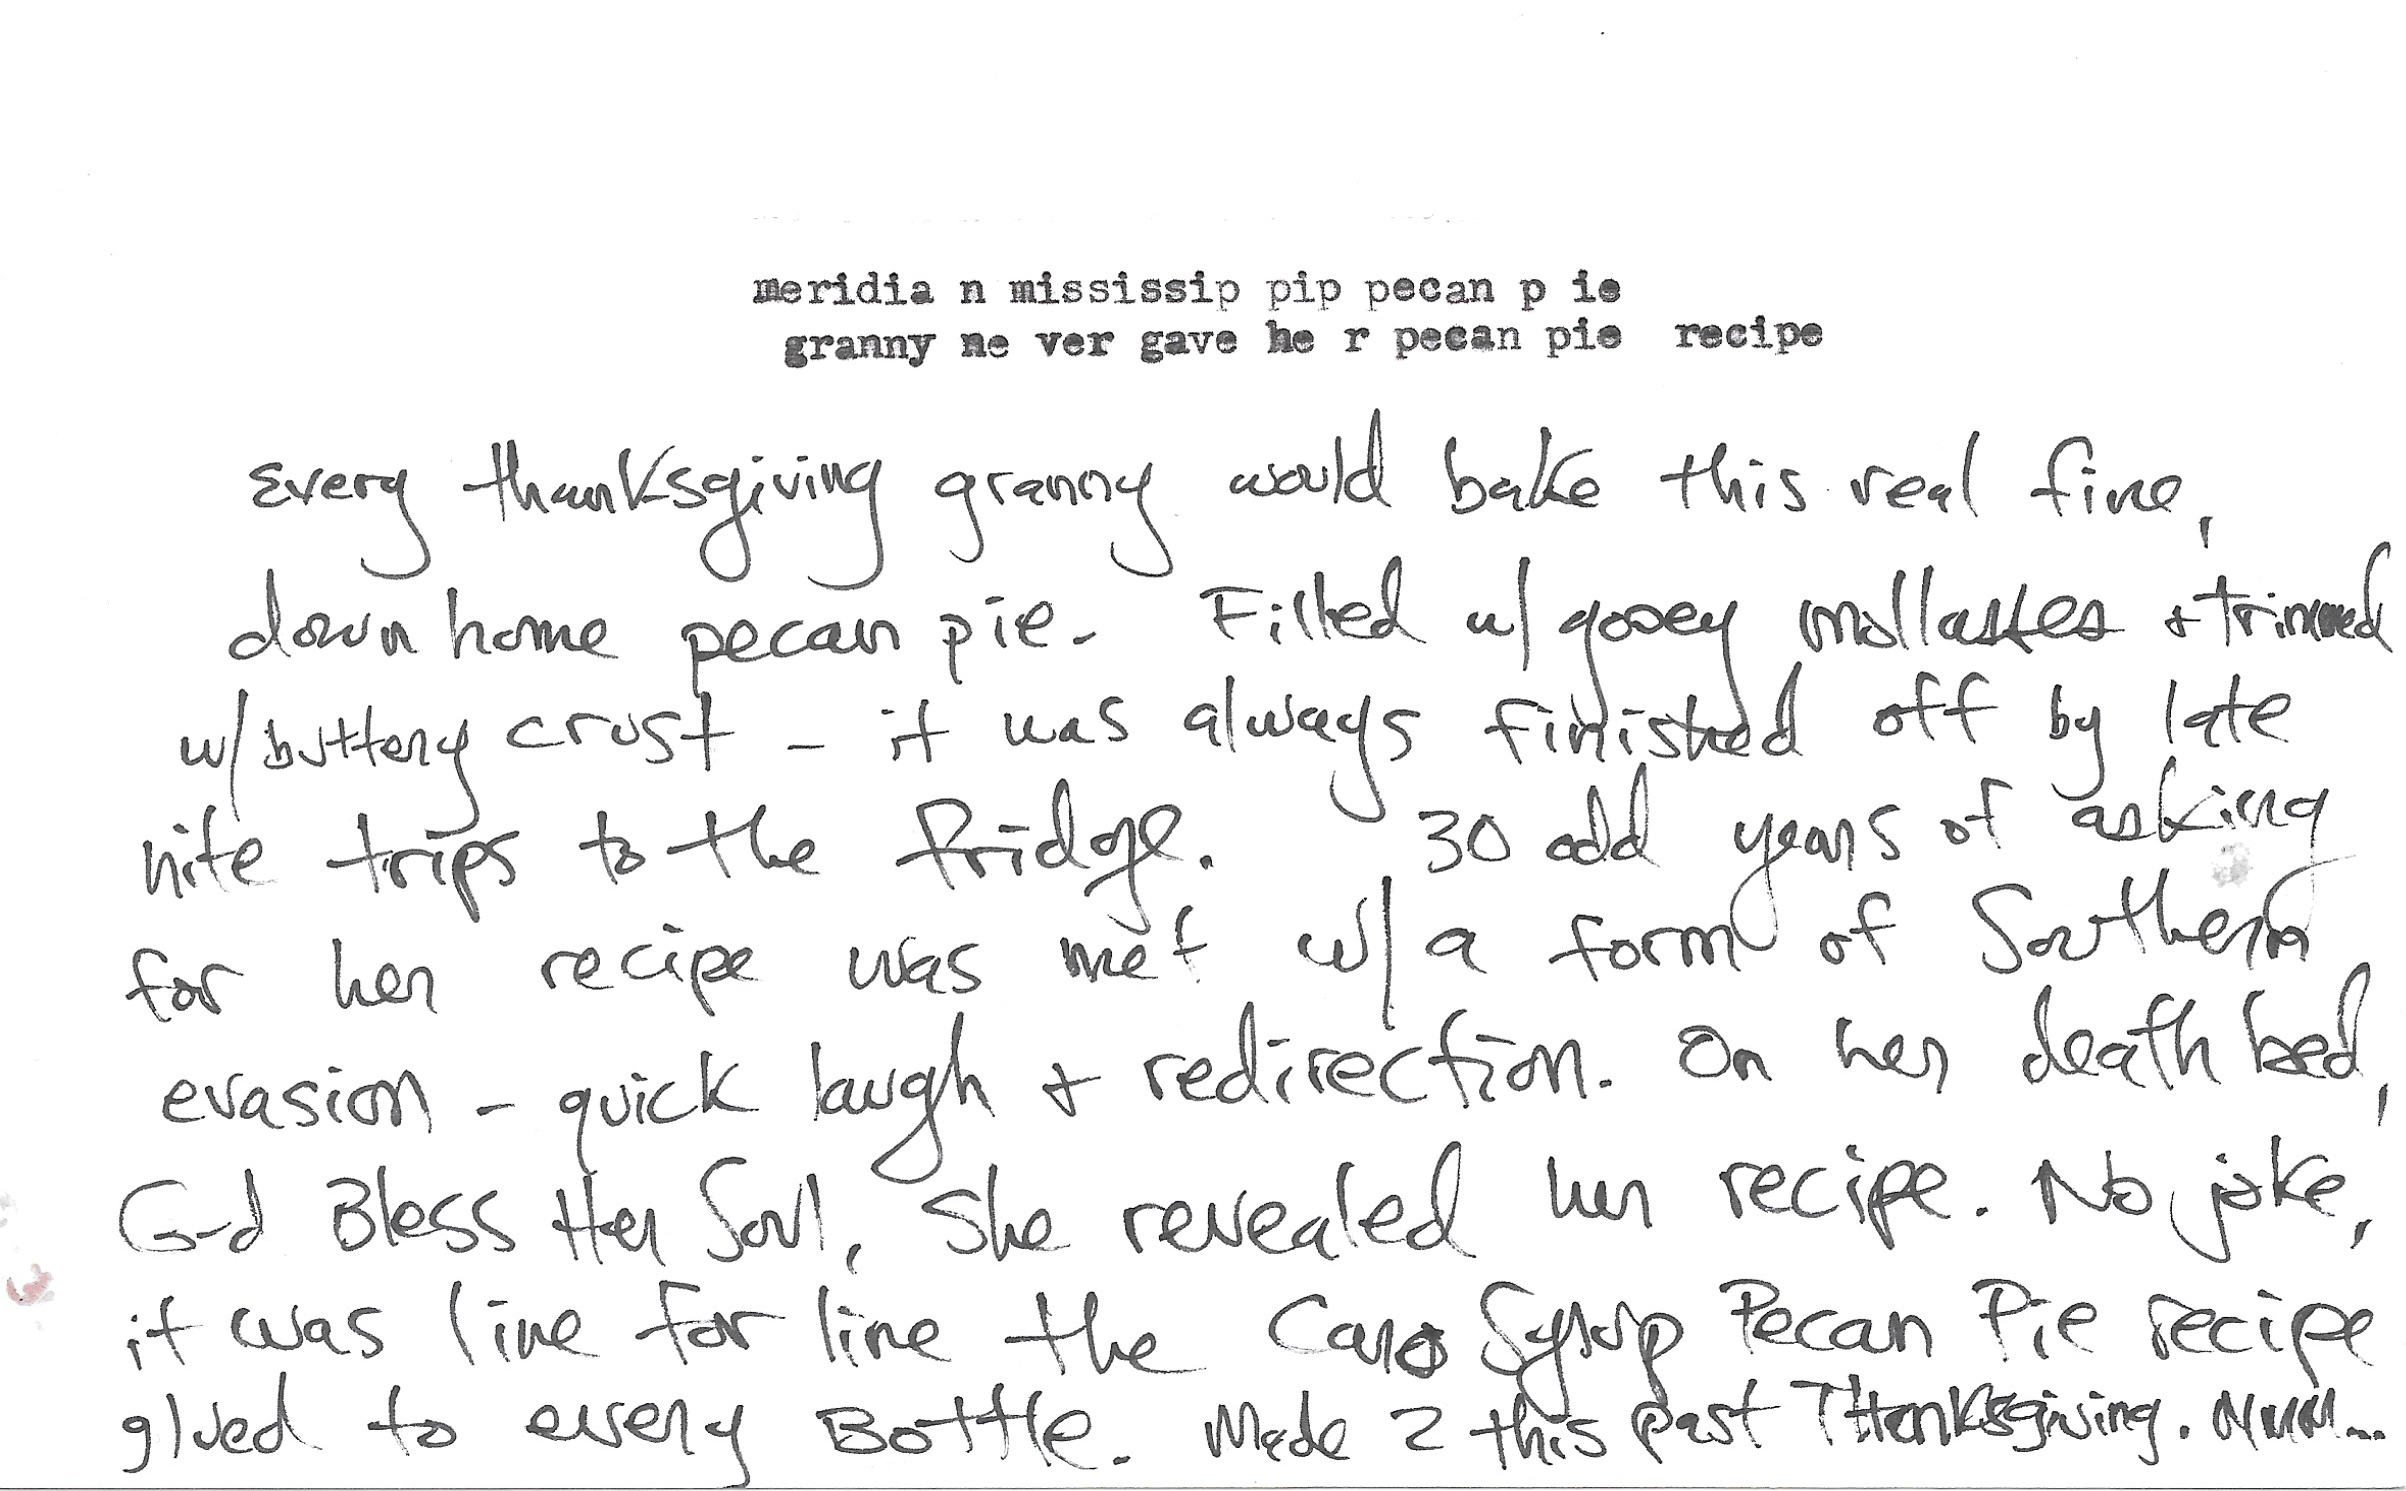 meridia n mississip pip pecan p ie
granny ne ver gave he r pecan pie recipe
Every thanksgiving granny would bake this real fine,
down home pecan pie. Filled w/ gooey mollasses + trimmed
w/ buttery crust - it was always finished off by late
nite trips to the fridge. 30 odd years of asking
for her recipe was met w/ a form of Southern
evasion - quick laugh + redirection. On her death bed,
G-d Bless Her Soul, She revealed her recipe. No joke,
it was line for line the Caro Syrup Pecan Pie recipe
glued to every Bottle. Made 2 this past Thanksgiving. Mmm...